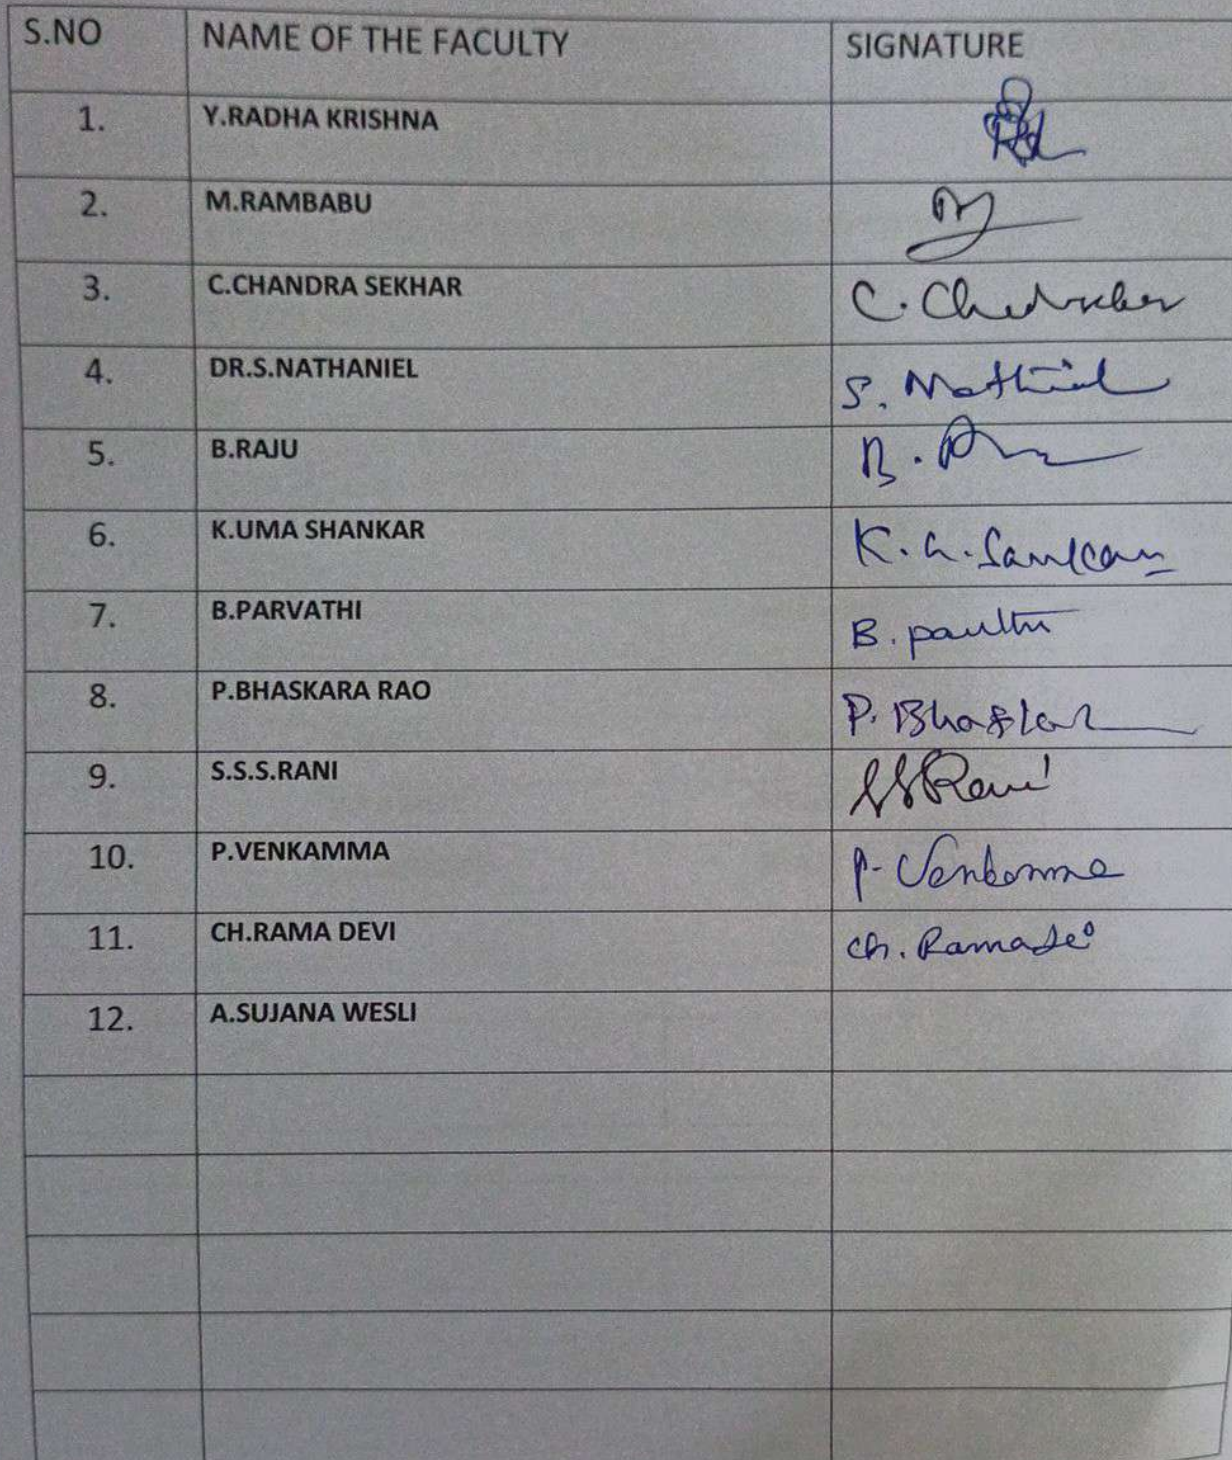 S.NO NAME OF THE FACULTY SIGNATURE
1. Y.RADHA KRISHNA
2. M.RAMBABU
3. C.CHANDRA SEKHAR C.
4. DR.S.NATHANIEL S.
5. B.RAJU B.
6. K.UMA SHANKAR K.
7. B.PARVATHI B.
8. P.BHASKARA RAO P.
9. S.S.S.RANI SSRani
10. P.VENKAMMA P. Venkamma
11. CH.RAMA DEVI Ch.
12. A.SUJANA WESLI